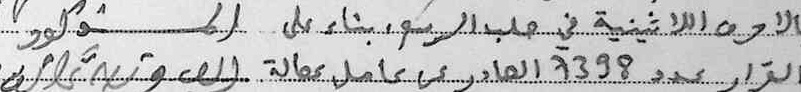 الأحرف اللاتينية في صلب الرسم، بناء على المذكور
القرار عدد 7398 الصادر عن عامل عمالة